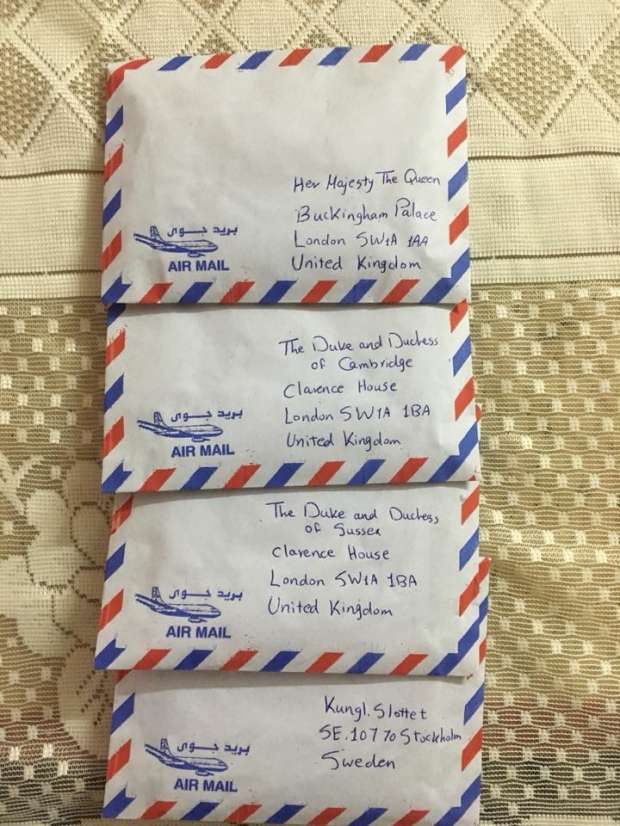 Her Majesty The Queen
Buckingham Palace
London SW1A 1AA
United Kingdom
بريد جوى
AIR MAIL
The Duke and Duchess
of Cambridge
Clarence House
London SW1A 1BA
United Kingdom
بريد جوى
AIR MAIL
The Duke and Duchess
of Sussex
Clarence House
London SW1A 1BA
United Kingdom
بريد جوى
AIR MAIL
Kungl. Slottet
SE.107 70 Stockholm
Sweden
بريد جوى
AIR MAIL